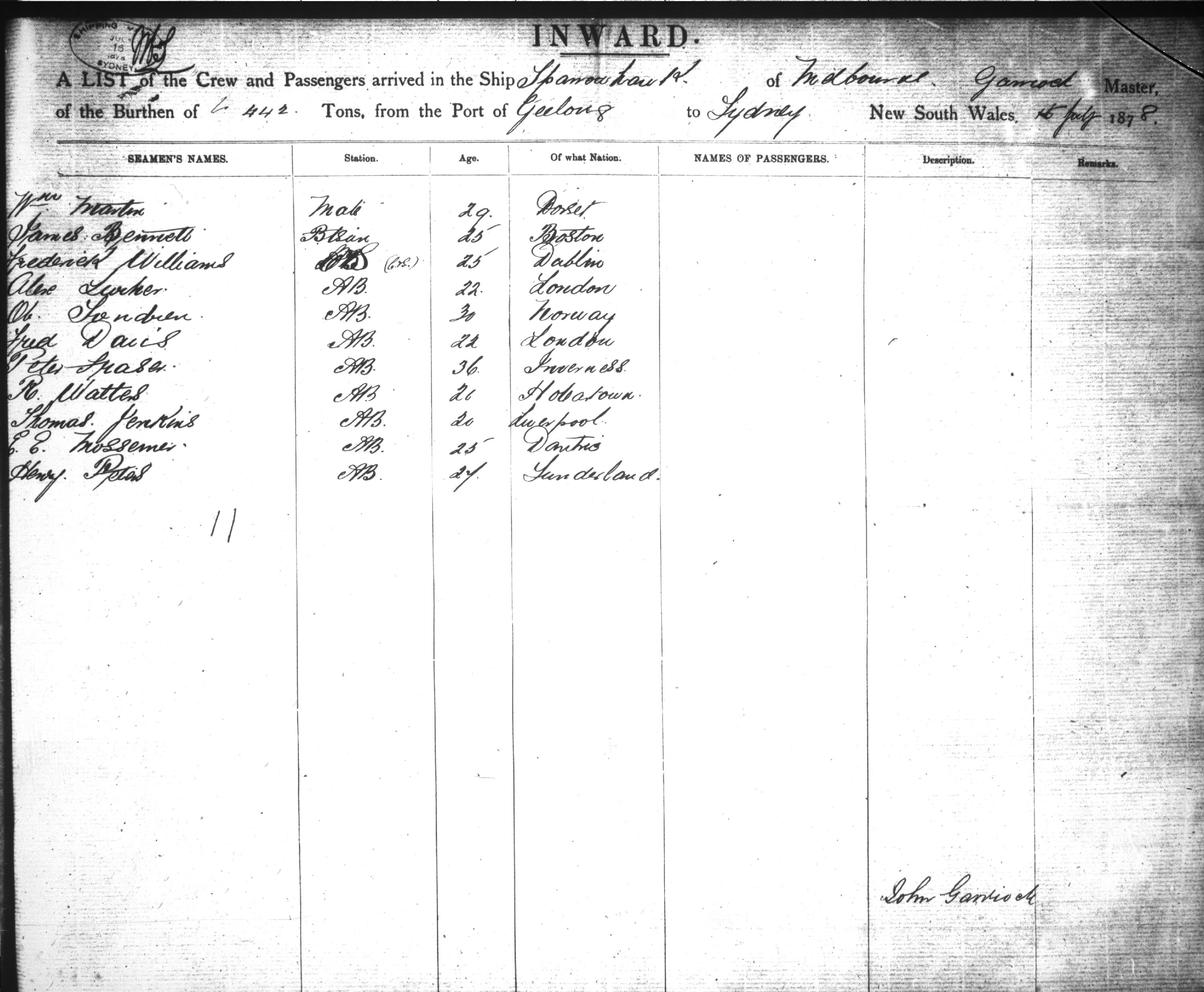 SHIPPING
JUL
15
1878
SYDNEY
INWARD.
A LIST of the Crew and Passengers arrived in the Ship Sparrowhawk. of Melbourne. Garriock Master,
of the Burthen of 442. Tons, from the Port of Geelong to Sydney New South Wales, 15 July 1878.
SEAMEN'S NAMES. Station. Age. Of what Nation. NAMES OF PASSENGERS. Description. Remarks.
Wm Martin Mate 29. Dorset
James Bennett 25 Boston
Frederick Williams 25 Dublin
Alex AB 22. London
AB. 30 Norway
Fred Davis AB. 22 London
Peter Fraser. AB. 36. Inverness.
R. Watters AB Hobatown.
Thomas. Jenkins AB. 20 Liverpool.
E. E. Mossemer. AB. 25 Dantzic
Henry. Peters AB. 27. Sunderland.
11
John Garriock